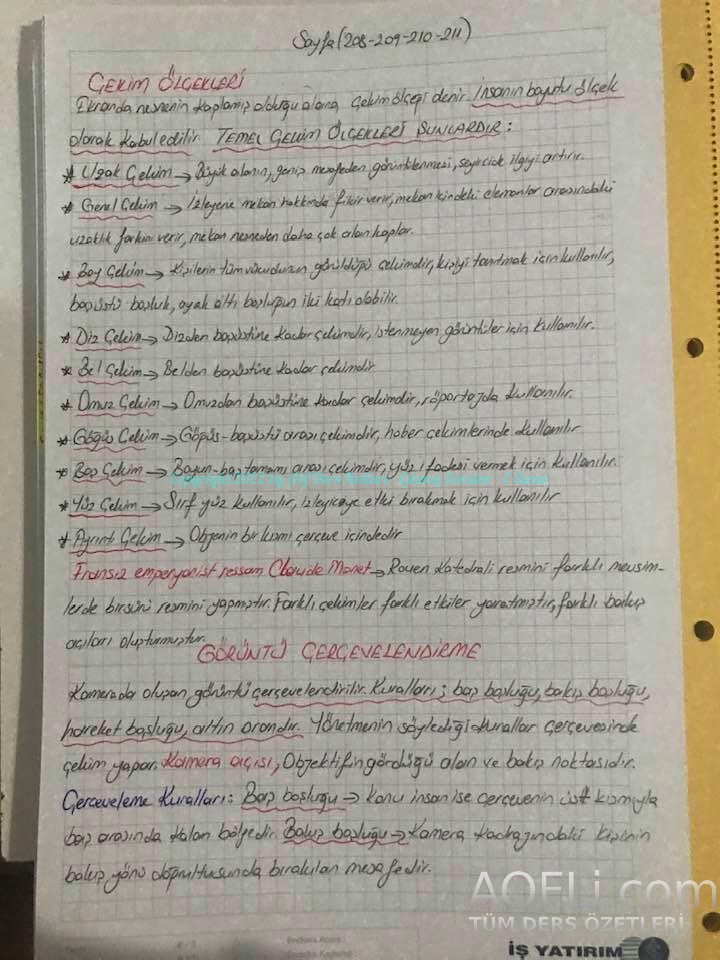 Sayfa (208-209-210-211)
ÇEKİM ÖLÇEKLERİ
Ekranda nesnenin kaplamış olduğu alana çekim ölçeği denir. İnsanın boyutu ölçek
olarak kabul edilir. TEMEL ÇEKİM ÖLÇEKLERİ ŞUNLARDIR:
* Uzak Çekim → Büyük alanın, geniş mesafeden görüntülenmesi, seyircide ilgiyi artırır.
* Genel Çekim → İzleyene mekan hakkında fikir verir, mekan içindeki elemanlar arasındaki
uzaklık farkını verir, mekan nesneden daha çok alan kaplar.
* Boy Çekim → Kişilerin tüm vücudunun görüldüğü çekimdir, kişiyi tanıtmak için kullanılır,
başüstü boşluk, ayak altı boşluğun iki katı olabilir.
* Diz Çekim → Dizden başüstüne kadar çekimdir, istenmeyen görüntüler için kullanılır.
* Bel Çekim → Belden başüstüne kadar çekimdir
* Omuz Çekim → Omuzdan başüstüne kadar çekimdir, röportajda kullanılır.
* Göğüs Çekim → Göğüs-başüstü arası çekimdir, haber çekimlerinde kullanılır
* Baş Çekim → Boyun-baş tamamı arası çekimdir, yüz ifadesi vermek için kullanılır.
* Yüz Çekim → Sırf yüz kullanılır, izleyiciye etki bırakmak için kullanılır
* Ayrıntı Çekim → Objenin bir kısmı çerçeve içindedir
Fransız emperyonist ressam Claude Monet → Rouen Katedrali resmini farklı mevsim-
lerde birsürü resmini yapmıştır. Farklı çekimler farklı etkiler yaratmıştır, farklı bakış
açıları oluşturmuştur.
GÖRÜNTÜ ÇERÇEVELENDİRME
Kamerada oluşan görüntü çerçevelendirilir. Kuralları; baş boşluğu, bakış boşluğu,
hareket boşluğu, altın orandır. Yönetmenin söylediği kurallar çerçevesinde
çekim yapar. Kamera açısı, Objektifin gördüğü alan ve bakış noktasıdır.
Çerçeveleme Kuralları: Baş boşluğu → Konu insan ise çerçevenin üst kısmıyla
baş arasında kalan bölgedir. Bakış boşluğu → Kamera kadrajındaki kişinin
bakış yönü doğrultusunda bırakılan mesafedir.
AOFLi.com
TÜM DERS ÖZETLERİ
İŞ YATIRIM